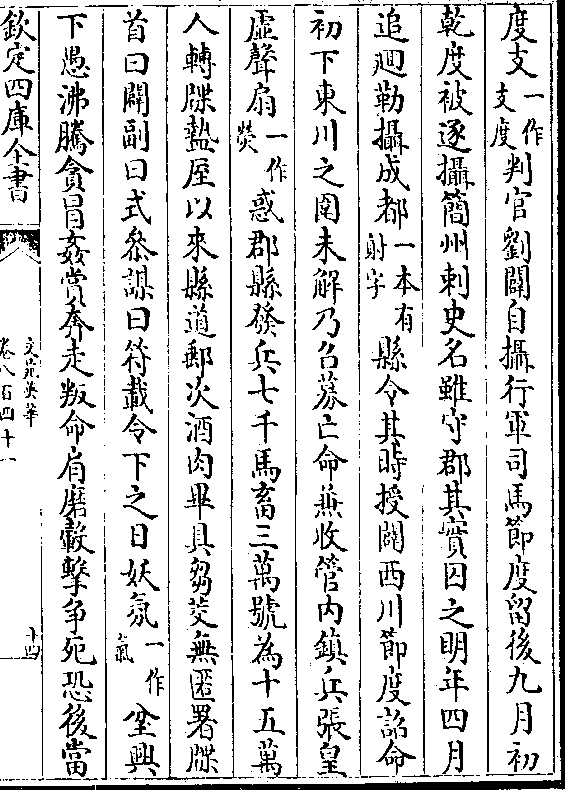 度支一作支度判官劉闢自攝行軍司馬節度留後九月初
乾度被逐攝簡州刺史名雖守郡其實囚之明年四月
追廻勒攝成都一本有尉字縣令其時授闢西川節度詔命
初下東川之圍未解乃召募亡命兼收管内鎮兵張皇
虛聲扇一作熒惑郡縣發兵七千馬畜三萬號為十五萬
人轉牒盩厔以來縣道郵次酒肉畢具芻茭無匿署牒
首曰闢副曰式叅謀曰符載令下之日妖氛一作氣坌興
下愚沸騰貪冒姦賞奔走叛命肩磨轂擊争死恐後當
欽定四庫全書
文苑英華
卷八百四十一
十四